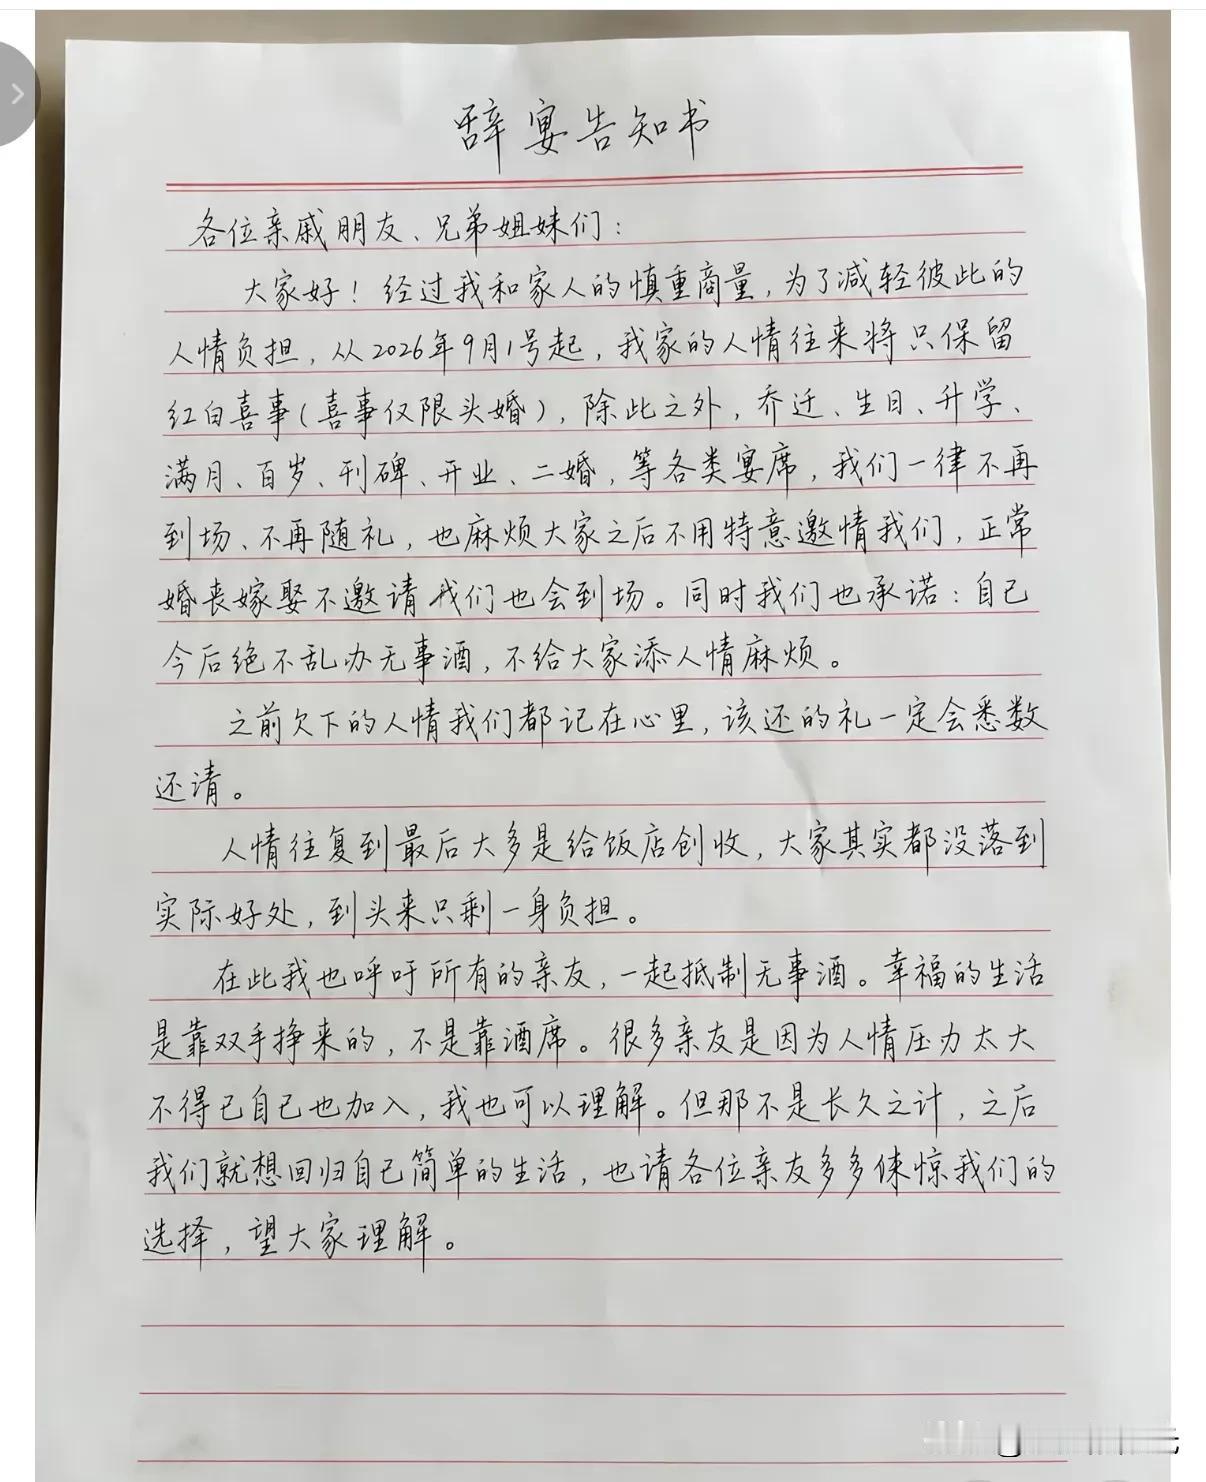 辞宴告知书
各位亲戚朋友、兄弟姐妹们：
大家好！经过我和家人的慎重商量，为了减轻彼此的
人情负担，从2026年9月1号起，我家的人情往来将只保留
红白喜事（喜事仅限头婚），除此之外，乔迁、生日、升学、
满月、百岁、刊碑、开业、二婚，等各类宴席，我们一律不再
到场、不再随礼，也麻烦大家之后不用特意邀情我们，正常
婚丧嫁娶不邀请我们也会到场。同时我们也承诺：自己
今后绝不乱办无事酒，不给大家添人情麻烦。
之前欠下的人情我们都记在心里，该还的礼一定会悉数
还清。
人情往复到最后大多是给饭店创收，大家其实都没落到
实际好处，到头来只剩一身负担。
在此我也呼吁所有的亲友，一起抵制无事酒。幸福的生活
是靠双手挣来的，不是靠酒席。很多亲友是因为人情压力太大
不得已自己也加入，我也可以理解。但那不是长久之计，之后
我们就想回归自己简单的生活，也请各位亲友多多倲惊我们的
选择，望大家理解。